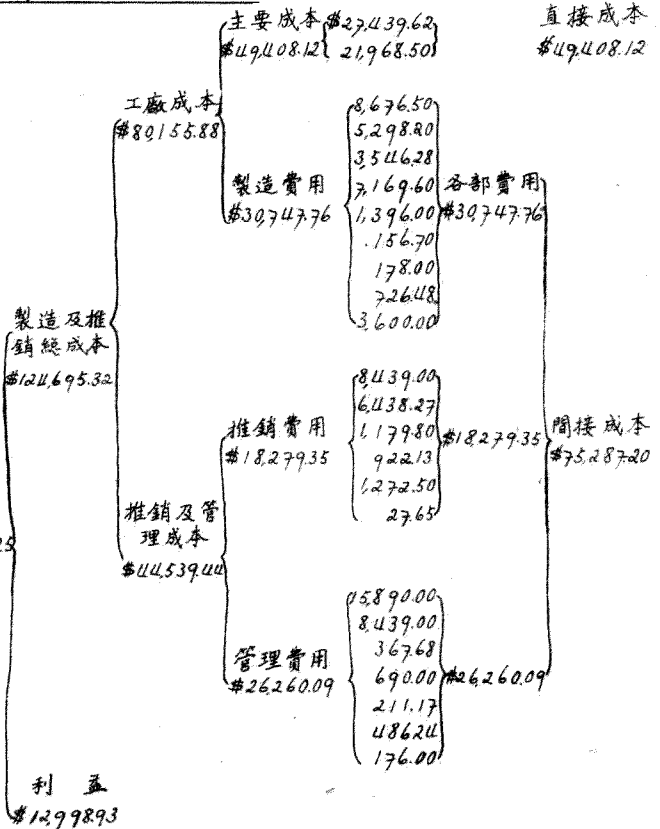 主要成本 $27,439.62
$49,408.12 21,968.50
直接成本
$49,408.12
工廠成本
$80,155.88
製造費用
$30,747.76
8,676.50
5,298.20
3,546.28
7,169.60
1,396.00
156.70
178.00
726.48
3,600.00
各部費用
$30,747.76
製造及推
銷總成本
$124,695.32
推銷費用
$18,279.35
8,439.00
6,438.27
1,179.80
922.13
1,272.50
27.65
$18,279.35
間接成本
$75,287.20
推銷及管
理成本
$44,539.44
管理費用
$26,260.09
15,890.00
8,439.00
367.68
690.00
211.17
486.24
176.00
$26,260.09
利 益
$12,998.93